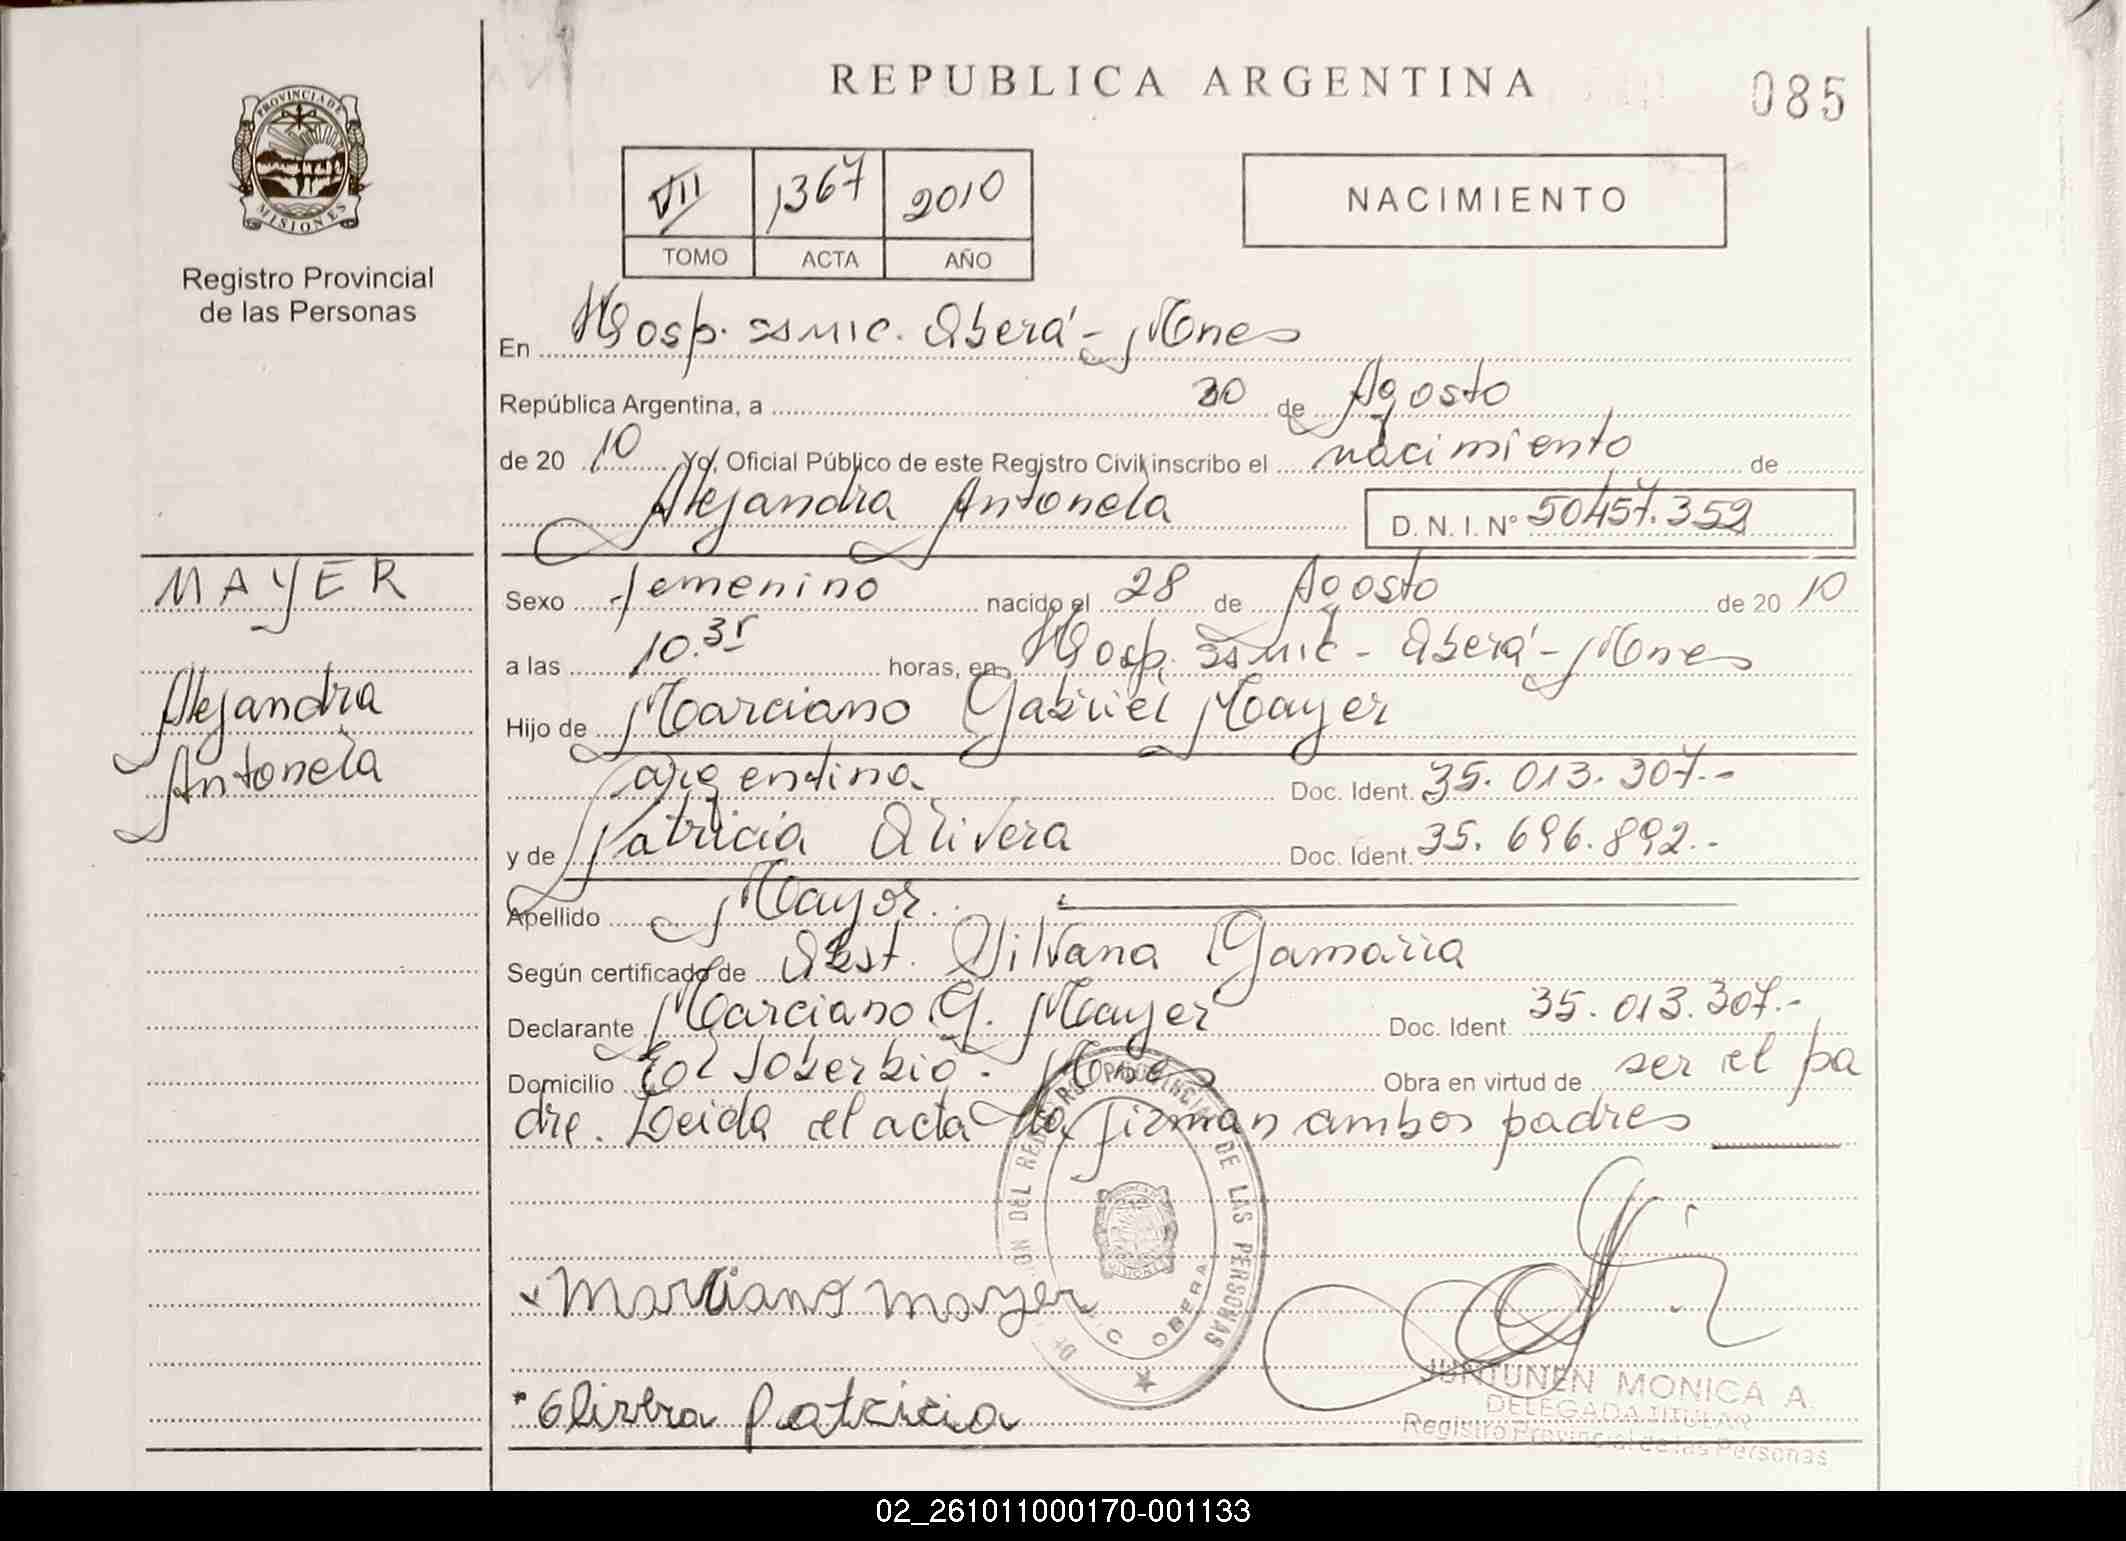 REPUBLICA ARGENTINA
085
PROVINCIA DE
MISIONES
Registro Provincial
de las Personas
VII 1367 2010
TOMO ACTA AÑO
NACIMIENTO
En Hosp. SAMIC. Oberá - Mnes
República Argentina, a 30 de Agosto
de 20 10 Yo, Oficial Público de este Registro Civil inscribo el nacimiento de
Alejandra Antonela D. N. I. Nº 50457.352
MAYER
Alejandra
Antonela
Sexo femenino nacido el 28 de Agosto de 20 10
a las 10.35 horas, en Hosp. SAMIC - Oberá - Mnes
Hijo de Marciano Gabriel Mayer
argentino Doc. Ident. 35. 013. 307.-
y de Patricia Olivera Doc. Ident. 35. 696. 892.-
Apellido Mayer.
Según certificado de Obst. Silvana Gamarra
Declarante Marciano G. Mayer Doc. Ident. 35. 013. 307.-
Domicilio El Soberbio. Mnes Obra en virtud de ser el pa
dre. Leida el acta la firman ambos padres
DEL REGISTRO PROVINCIAL DE LAS PERSONAS
OBERA
Marciano mayer
Olivera Patricia
JUNTUNEN MONICA A.
DELEGADA TITULAR
Registro Provincial de las Personas
02_261011000170-001133